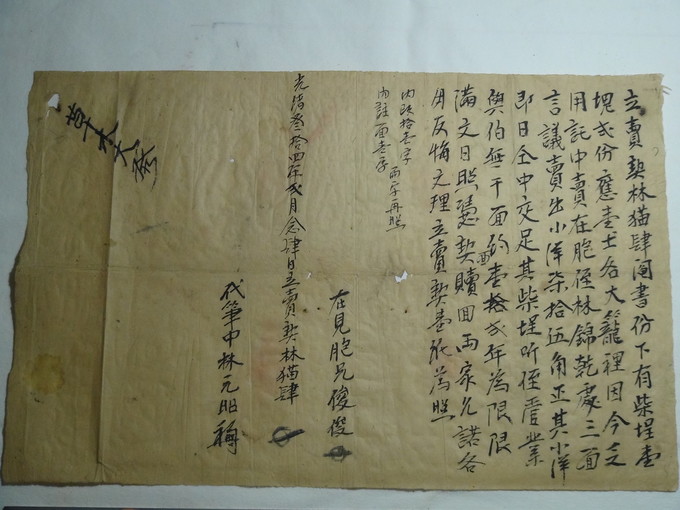 立賣契林猫肆鬮書份下有柴埕壹
塊弍份應壹土名大籠裡因今乏
用託中賣在胞侄林錦乾處三面
言議賣出小洋柒拾五角正其小洋
即日仝中交足其柴埕听侄管業
與伯無干面約壹拾弍年為限限
滿之日照憑契贖回両家允諾各
毋反悔之理立賣契壹紙為照
內改拾壹字両字再照
內註面壹字
光緒叁拾四年弍月念肆日立賣契林猫肆
在見胞兄俊俊
代筆中林元昭
大發